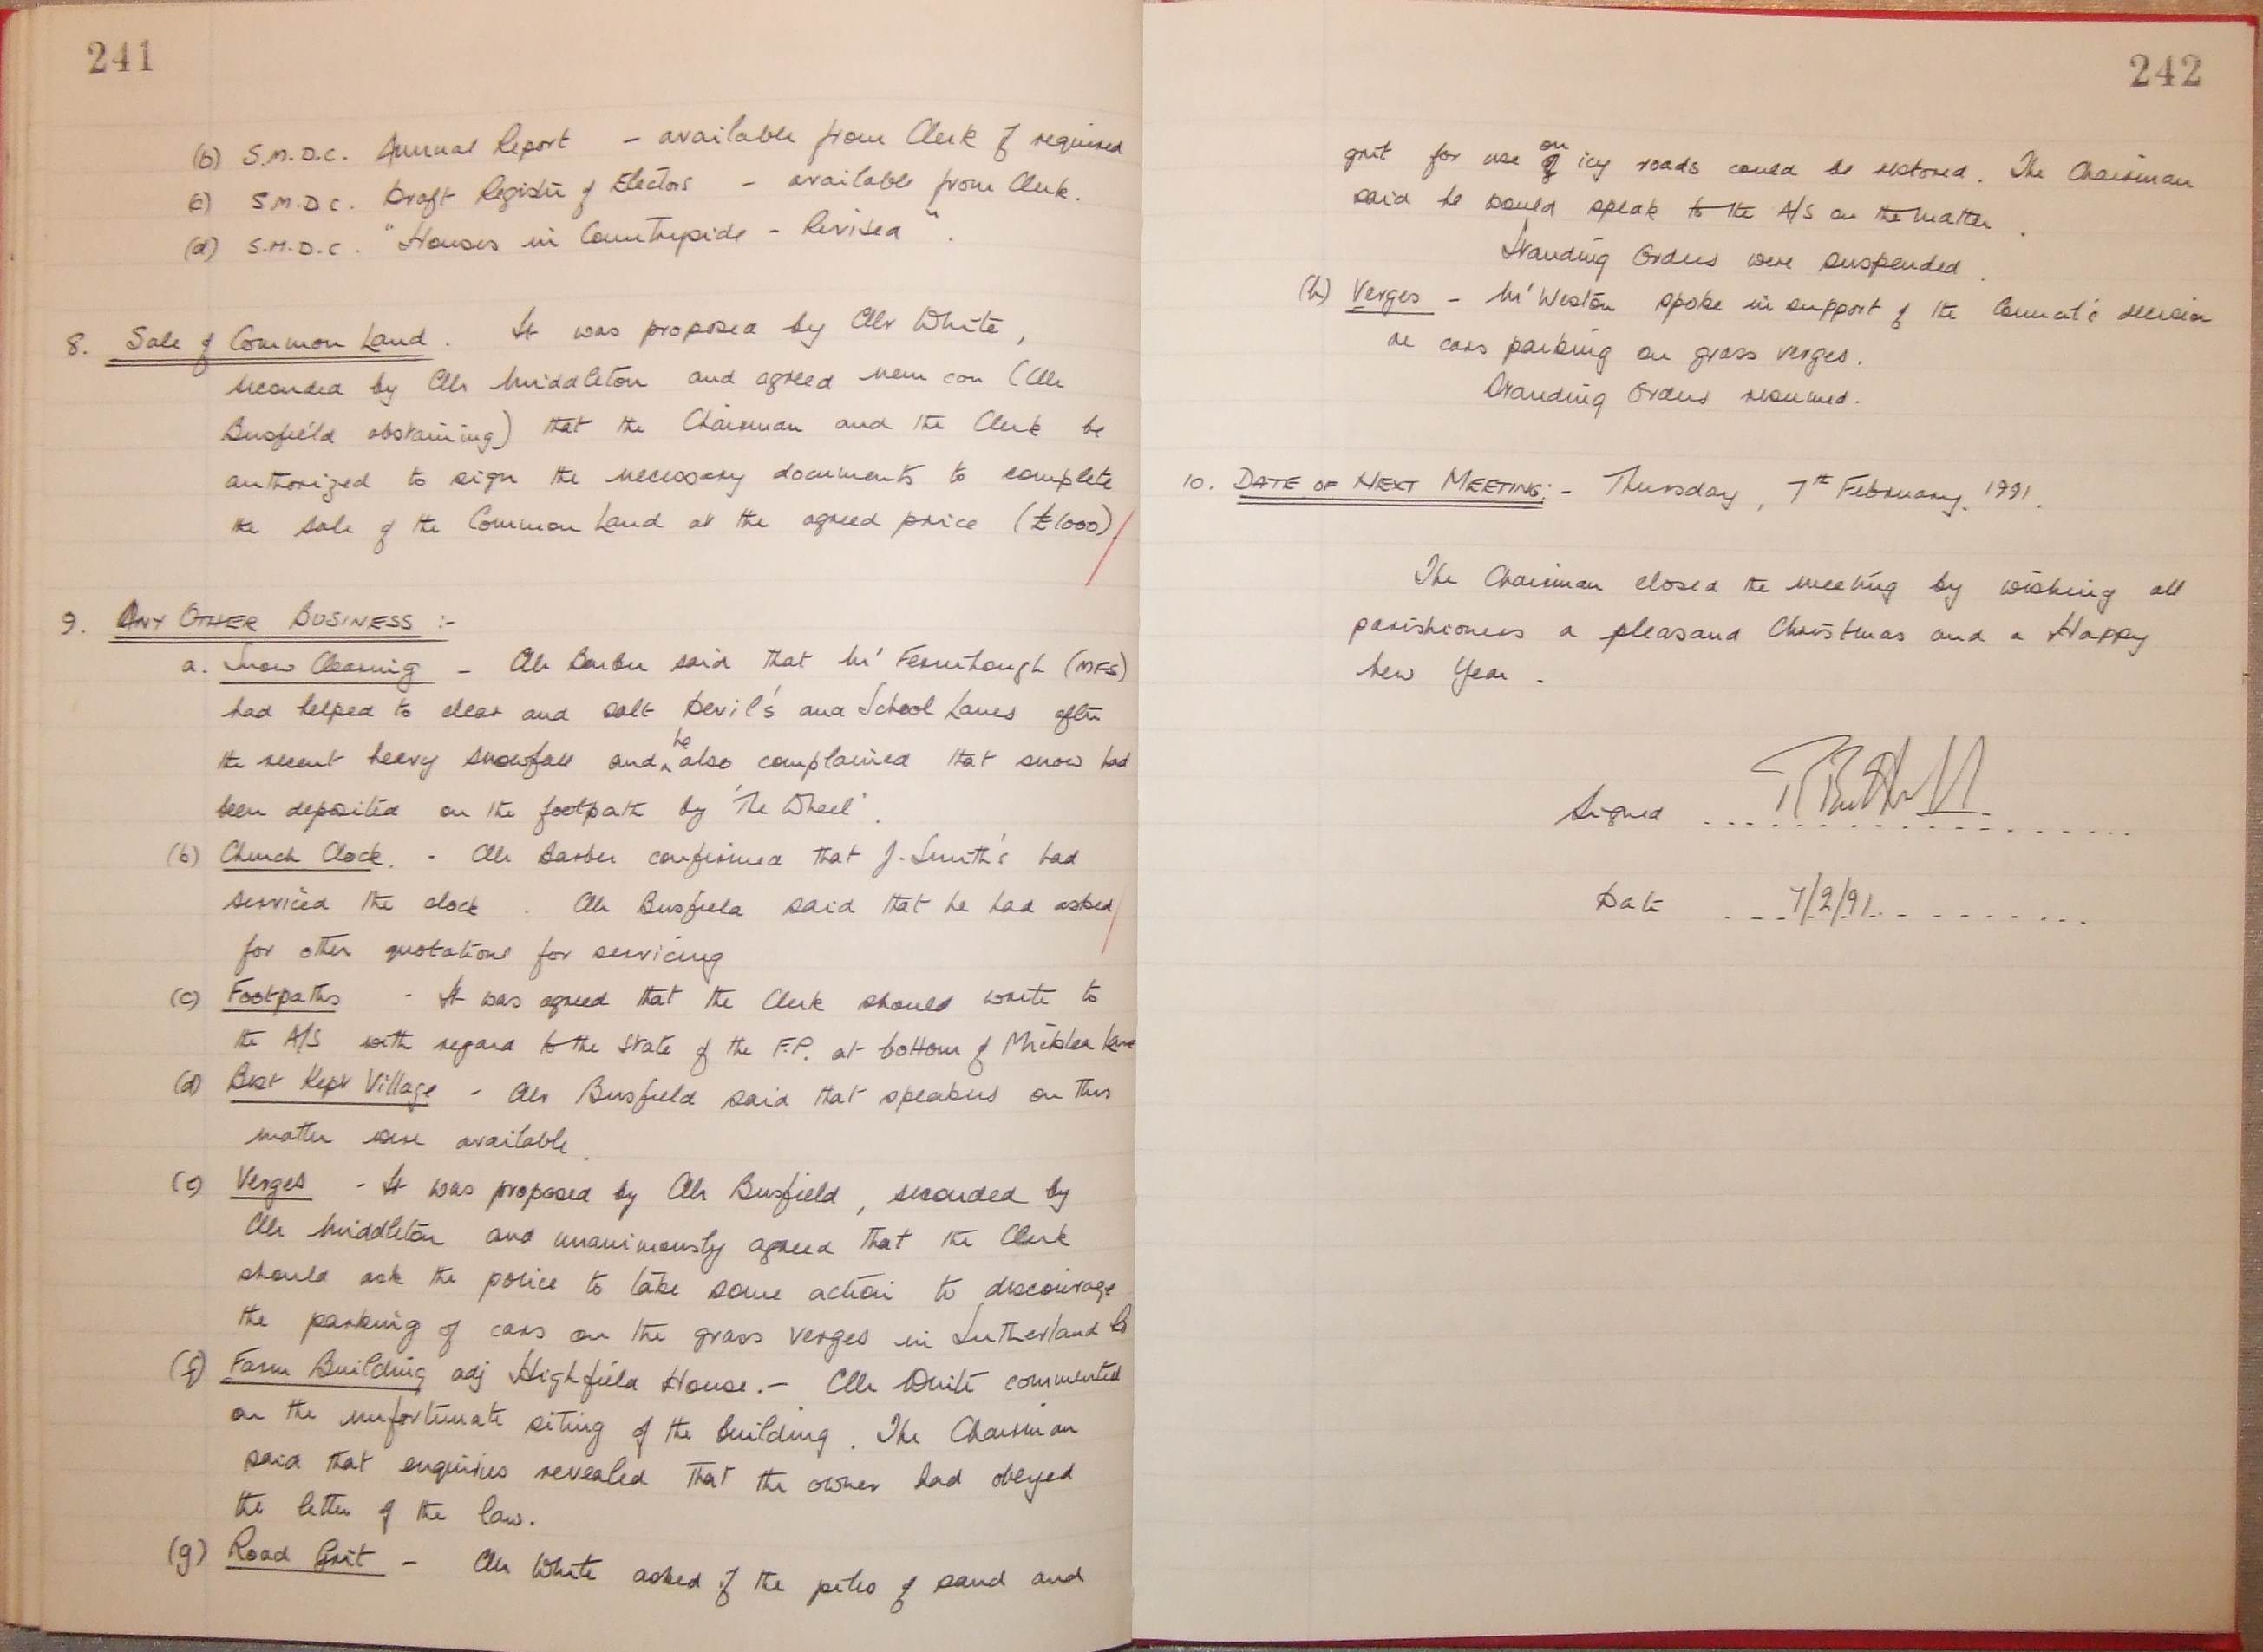 241
(b) S.M.D.C. Annual Report - available from Clerk if required
(c) S.M.D.C. Draft Register of Electors - available from Clerk.
(d) S.M.D.C. "Houses in Countryside - Revised".
8. Sale of Common Land. It was proposed by Cllr White,
seconded by Cllr Middleton and agreed nem con (Cllr
Busfield abstaining) that the Chairman and the Clerk be
authorized to sign the necessary documents to complete
the sale of the Common Land at the agreed price (£1000).
9. ANY OTHER BUSINESS :-
a. Snow Clearing - Cllr Barber said that Mr Fernihough (MFS)
had helped to clear and salt Devil's and School Lanes after
the recent heavy snowfall and he also complained that snow had
been deposited on the footpath by 'The Wheel'.
(b) Church Clock. - Cllr Barber confirmed that J. Smith's had
serviced the clock. Cllr Busfield said that he had asked
for other quotations for servicing
(c) Footpaths - It was agreed that the Clerk should write to
the A/S with regard to the State of the F.P. at bottom of Lane
(d) Best Kept Village - Cllr Busfield said that speakers on this
matter were available.
(e) Verges - It was proposed by Cllr Busfield, seconded by
Cllr Middleton and unanimously agreed that the Clerk
should ask the police to take some action to discourage
the parking of cars on the grass verges in Sutherland
(f) Farm Building adj Highfield House. - Cllr White commented
on the unfortunate siting of the building. The Chairman
said that enquiries revealed that the owner had obeyed
the letter of the law.
(g) Road Grit - Cllr White asked if the piles of sand and
242
grit for use on icy roads could be restored. The Chairman
said he would speak to the A/S on the matter.
Standing Orders were suspended.
(h) Verges - Mr Weston spoke in support of the Council's decision
re cars parking on grass verges.
Standing Orders resumed.
10. DATE OF NEXT MEETING:- Thursday, 7th February, 1991.
The Chairman closed the meeting by wishing all
parishioners a pleasand Christmas and a Happy
New Year.
Signed
Date 7/2/91